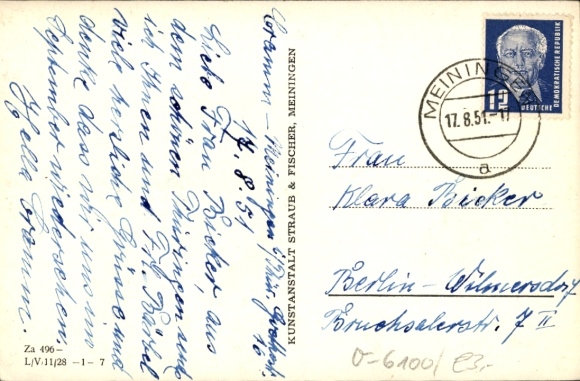 Cramm - Meiningen / Thür.
17. 8. 51
Liebe Frau Bicker, aus
dem schönen Thüringen sende
ich Ihnen und Frl. Bärbel
viel herzliche Grüsse und
denke dass wir uns im
September wiedersehen.
Hella Cramm.
Za 496 –
L/V-11/28 –1– 7
KUNSTANSTALT STRAUB & FISCHER, MEININGEN
DEUTSCHE DEMOKRATISCHE REPUBLIK
12
MEININGEN
17.8.51.-17
a
Frau
Klara Bicker
Berlin-Wilmersdorf
Bruchsalerstr. 7 II
0-6100/ E3,-